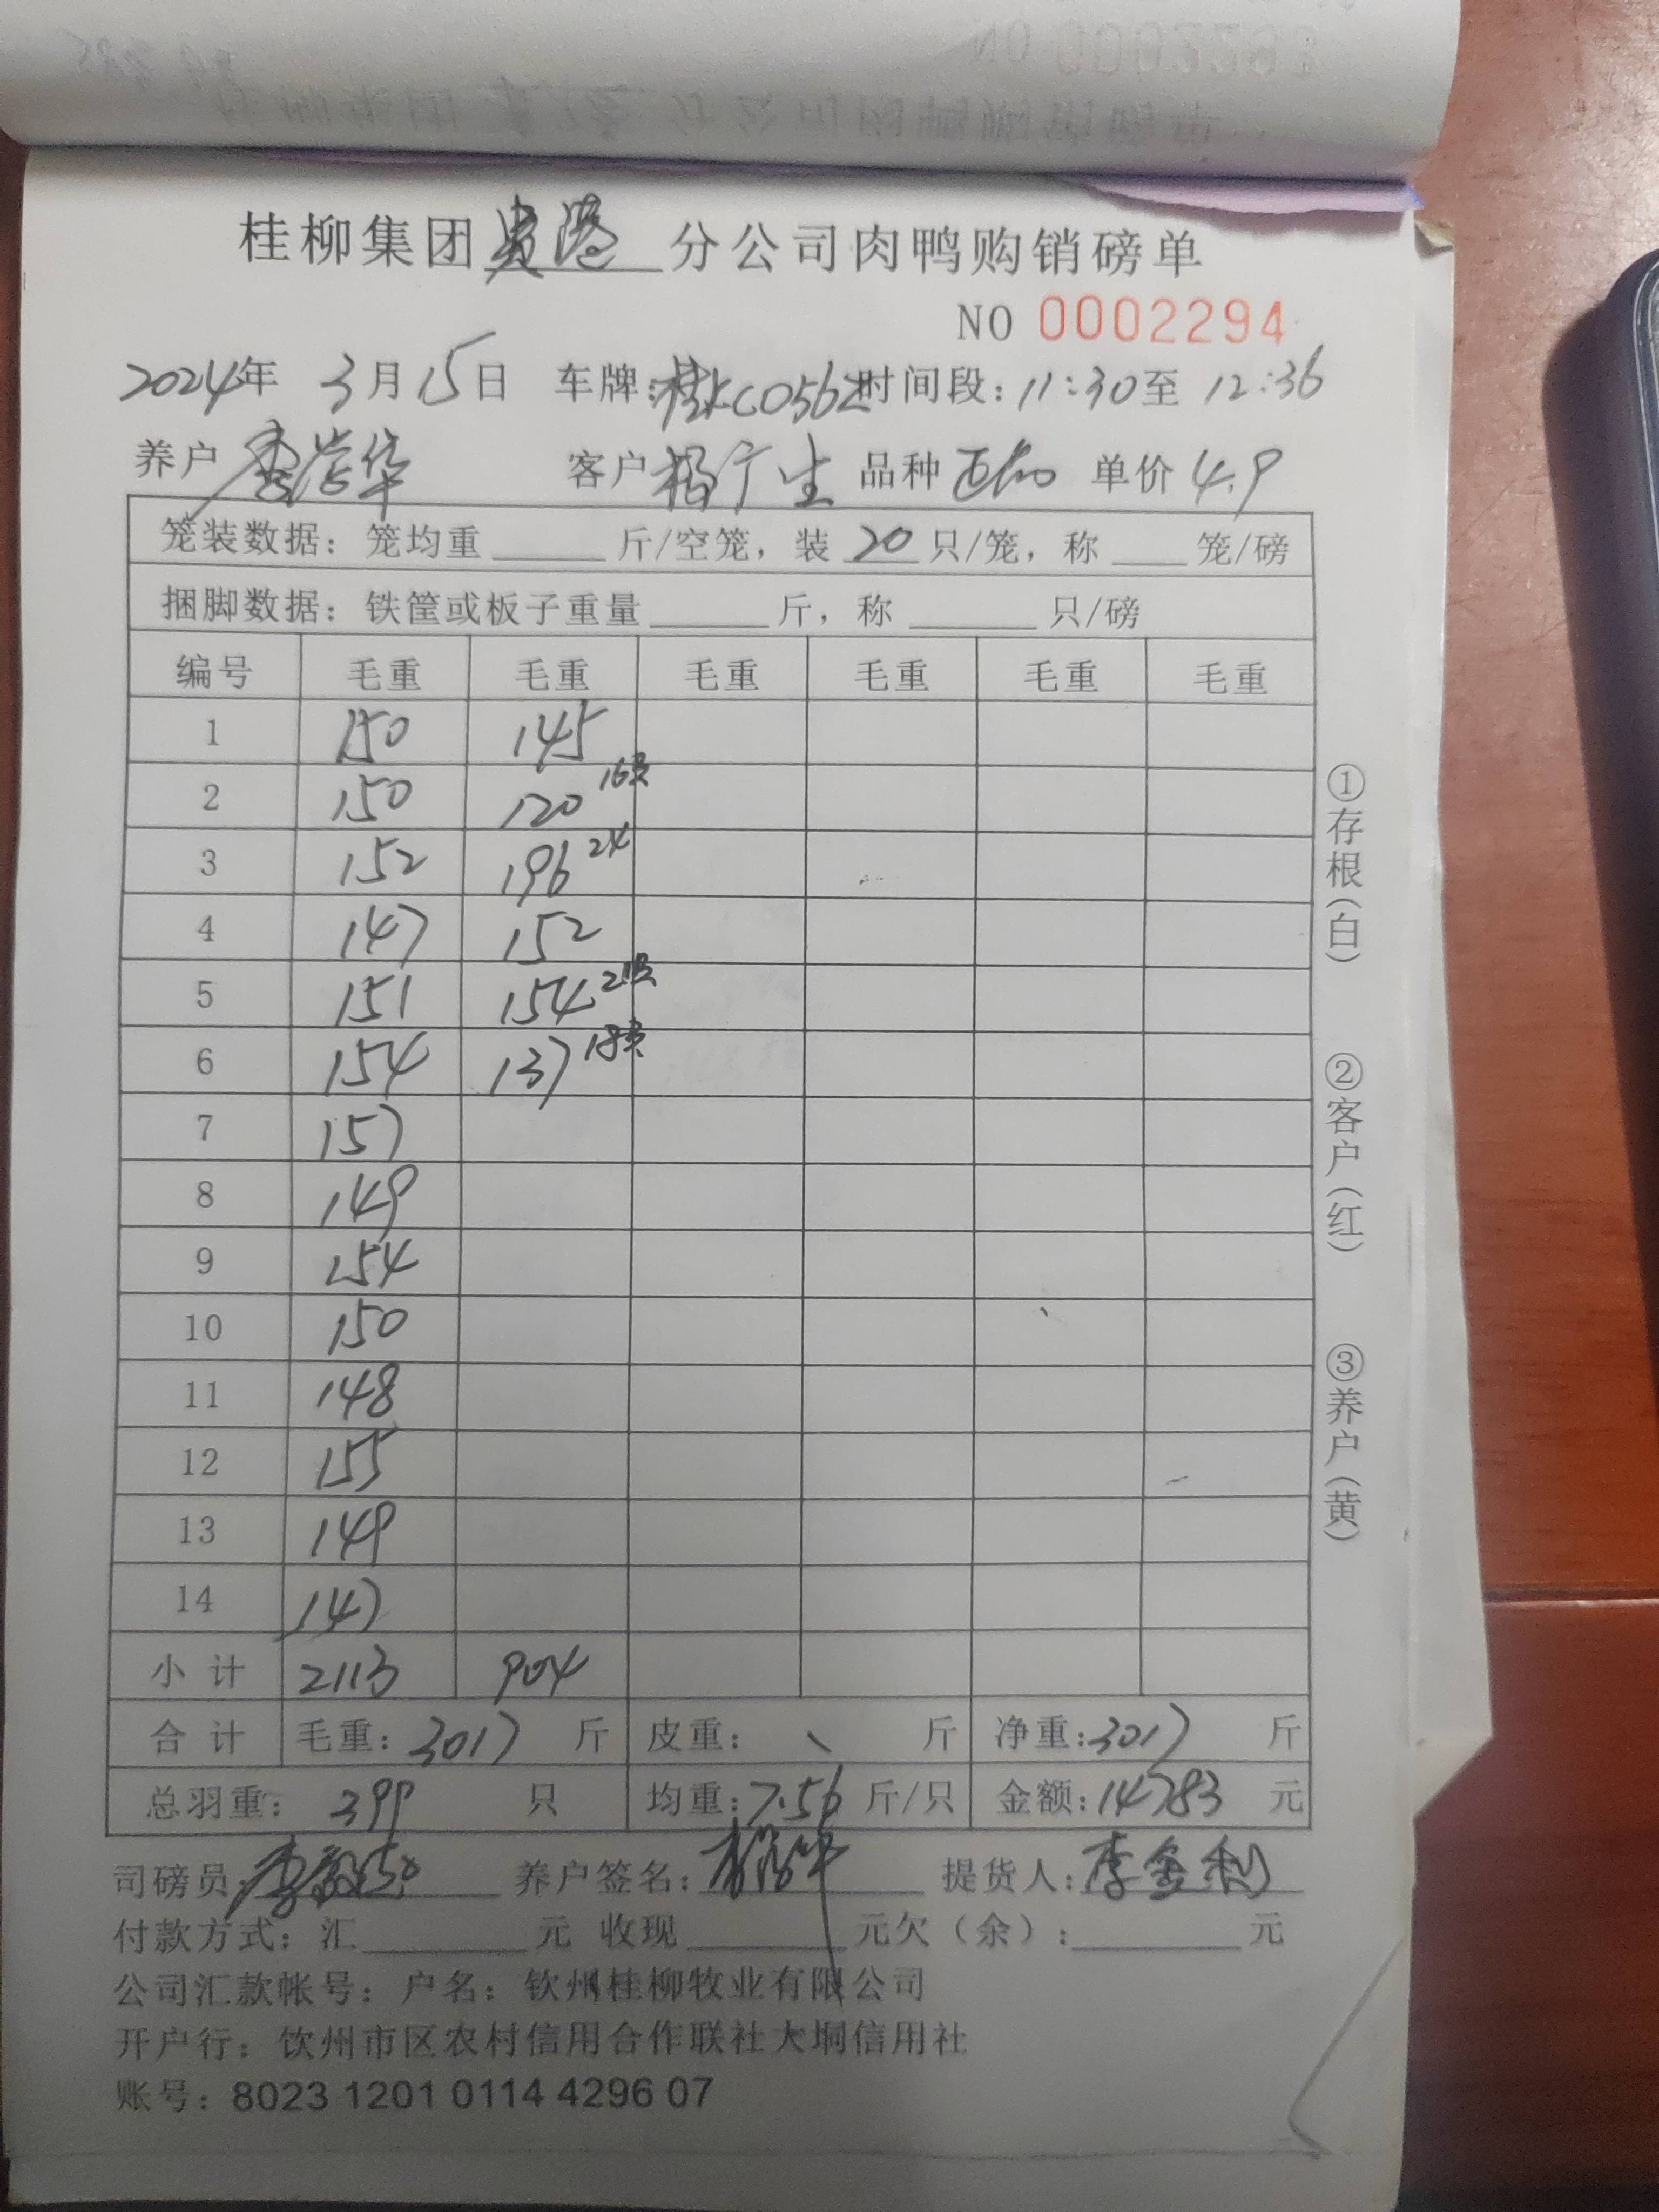 桂柳集团贵港分公司肉鸭购销磅单
NO 0002294
2024年 3月15日 车牌:桂KC0562 时间段:11:30至 12:36
养户 李学华 客户 杨广生 品种 单价 4.9
笼装数据：笼均重 斤/空笼，装 20 只/笼，称 笼/磅
捆脚数据：铁筐或板子重量 斤，称 只/磅
编号 毛重 毛重 毛重 毛重 毛重 毛重
1 150 145
2 150 120 16只
3 152 196 24
4 147 152
5 151 154 21只
6 154 137 18只
7 157
8 149
9 154
10 150
11 148
12 155
13 149
14 147
小计 2113 904
合计 毛重：3017 斤 皮重：\ 斤 净重：3017 斤
总羽重：399 只 均重：7.56 斤/只 金额：14783 元
司磅员： 养户签名： 提货人：李金利
付款方式：汇 元 收现 元欠（余）： 元
公司汇款帐号：户名：钦州桂柳牧业有限公司
开户行：饮州市区农村信用合作联社大垌信用社
账号：8023 1201 0114 4296 07
①存根（白）
②客户（红）
③养户（黄）